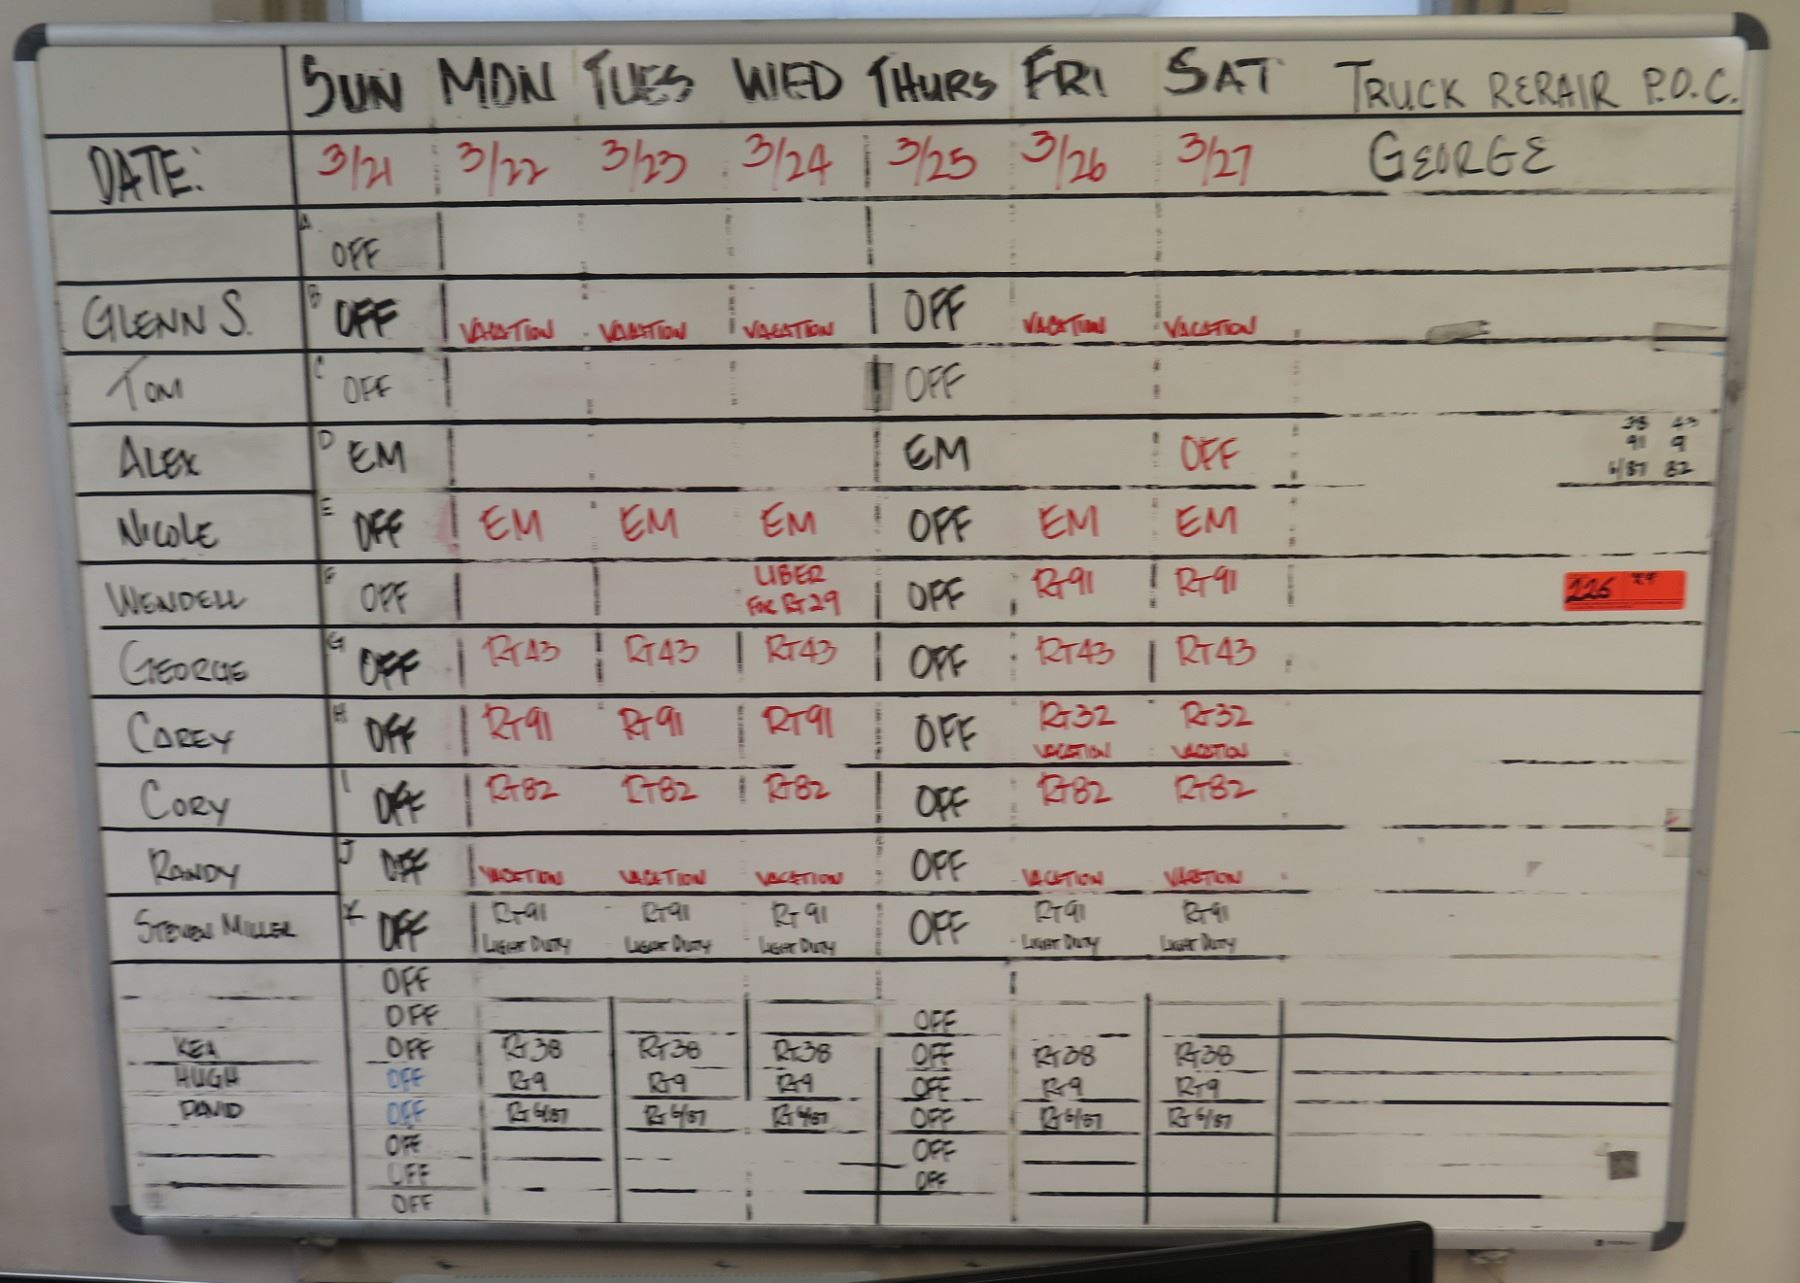 SUN MON TUES WED THURS FRI SAT TRUCK RERAIR P.O.C.
DATE: 3/21 3/22 3/23 3/24 3/25 3/26 3/27 GEORGE
A OFF
GLENN S. B OFF VACATION VACATION VACATION OFF VACATION VACATION
TOM C OFF OFF
ALEX D EM EM OFF
38 43
91 9
6/87 82
NICOLE E OFF EM EM EM OFF EM EM
WENDELL F OFF UBER FOR RT29 OFF RT91 RT91 226
GEORGE G OFF RT43 RT43 RT43 OFF RT43 RT43
COREY H OFF RT91 RT91 RT91 OFF RT32 VACATION RT32 VACATION
CORY I OFF RT82 RT82 RT82 OFF RT82 RT82
RANDY J OFF VACATION VACATION VACATION OFF VACATION VACATION
STEVEN MILLER K OFF RT91 LIGHT DUTY RT91 LIGHT DUTY RT91 LIGHT DUTY OFF RT91 LIGHT DUTY RT91 LIGHT DUTY
OFF
OFF OFF
KEA OFF RT38 RT38 RT38 OFF RT38 RT38
HUGH OFF RT9 RT9 RT9 OFF RT9 RT9
DAVID OFF RT6/87 RT6/87 RT6/87 OFF RT6/87 RT6/87
OFF OFF
OFF OFF
OFF